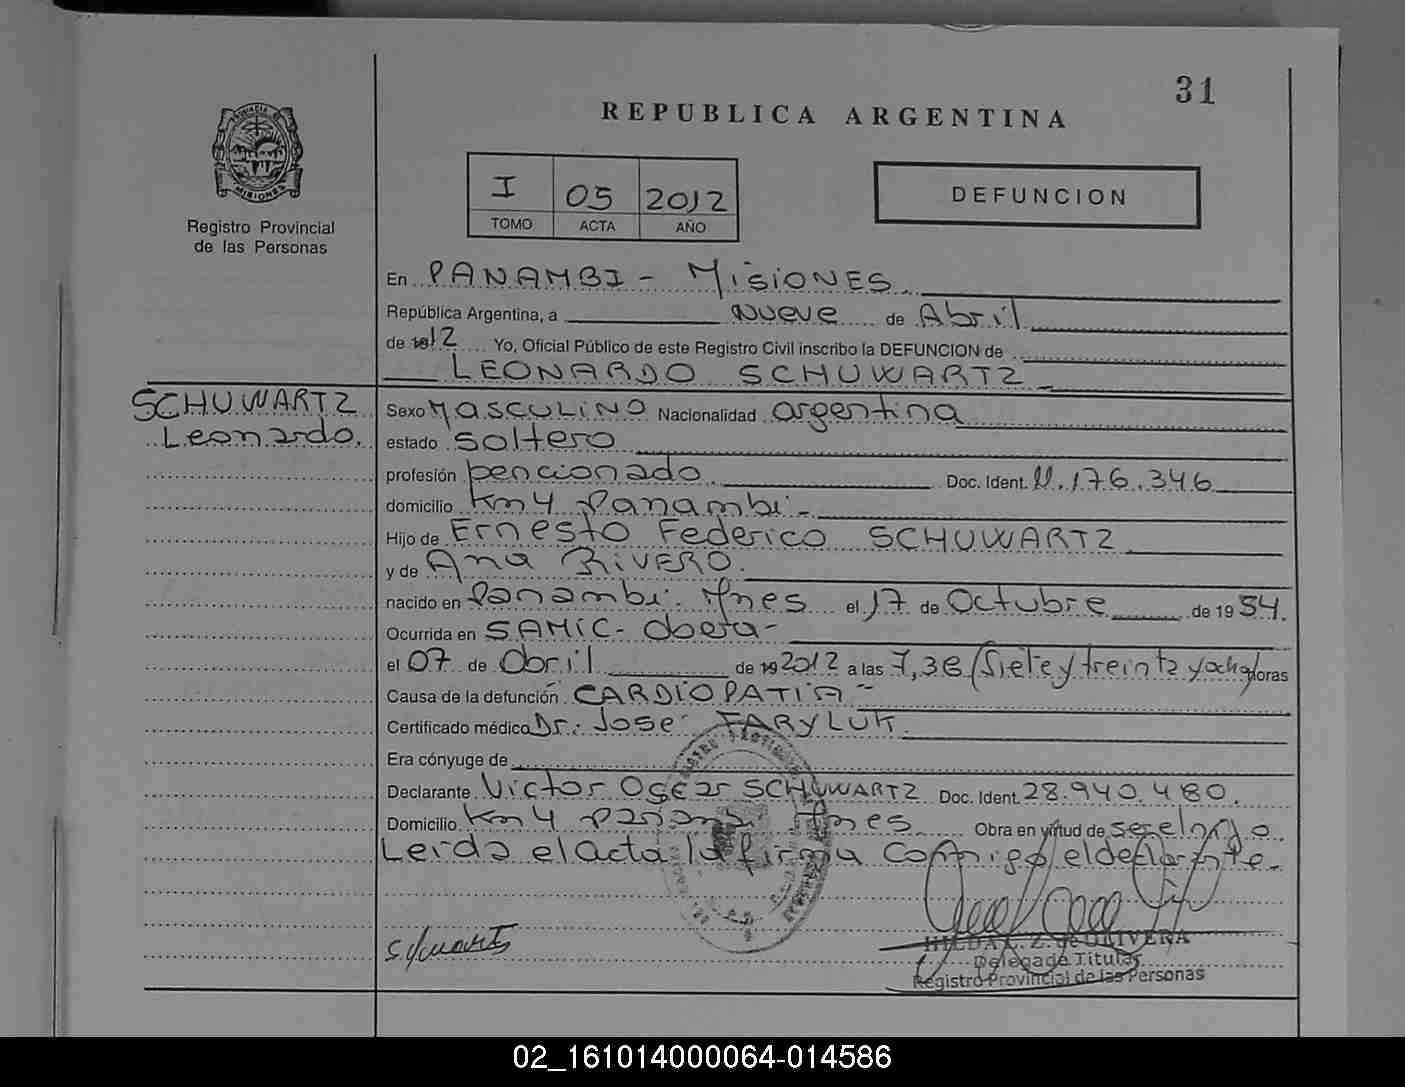 31
REPUBLICA ARGENTINA
PROVINCIA DE MISIONES
Registro Provincial
de las Personas
I 05 2012
TOMO ACTA AÑO
DEFUNCION
En PANAMBI - MISIONES
República Argentina, a nueve de Abril
de 12 Yo, Oficial Público de este Registro Civil inscribo la DEFUNCION de
LEONARDO SCHUWARTZ
SCHUWARTZ
Leonardo.
Sexo MASCULINO Nacionalidad argentina
estado Soltero
profesión pencionado Doc. Ident. 11.176.346
domicilio Km 4 Panambi -
Hijo de Ernesto Federico SCHUWARTZ
y de Ana RIVERO.
nacido en Panambi. Mnes el 17 de Octubre de 19 54.
Ocurrida en SAMIC - Obera -
el 07 de Abril de 2012 a las 7,38 (Siete y treinta y ocho) horas
Causa de la defunción CARDIOPATIA -
Certificado médico Dr. Jose FARYLUK.
Era cónyuge de
Declarante Victor Oscar SCHUWARTZ Doc. Ident. 28.940.480.
Domicilio Km 4 Mnes Obra en virtud de
Leida el acta la firma conmigo el declarante.
HILDA Z. de OLIVERA
Delegada Titular
Registro Provincial de las Personas
02_161014000064-014586